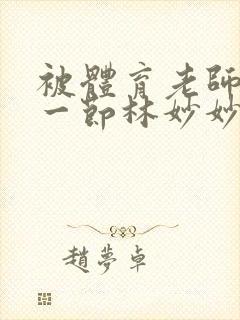 被體育老師
一節林妙妙
趙夢卓